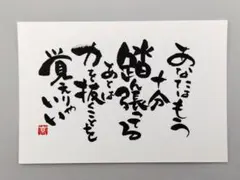 あなたはもう
十分
踏ん張ってる
あとは
力を抜くことを
覚えりゃ
いい